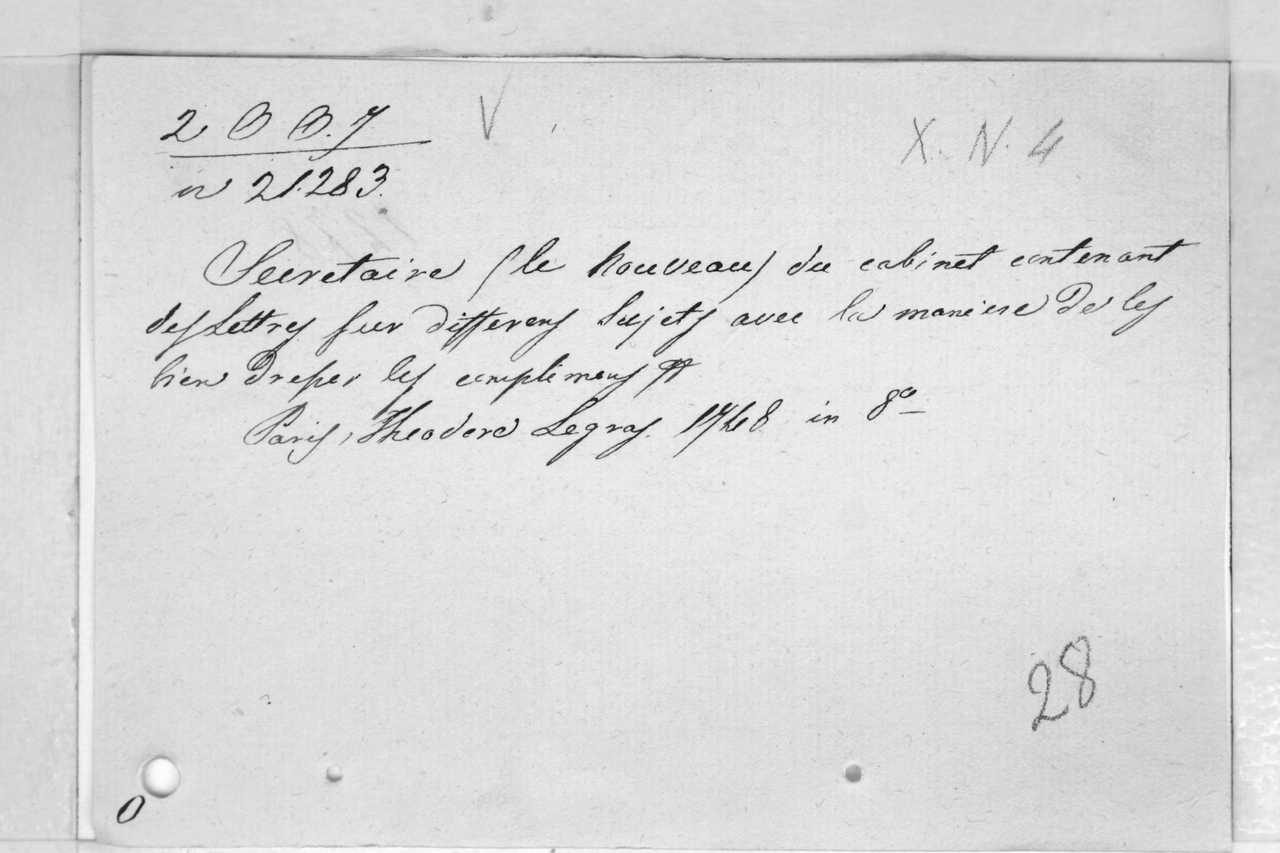 2 B B. 7 V
X. N. 4
in 21.283.
Secretaire (le nouveau) du cabinet contenant
des Lettres sur differens Sujets avec la maniere de les
bien dresser les complimens
Paris, Theodore Legras. 1748 in 8º
28
0